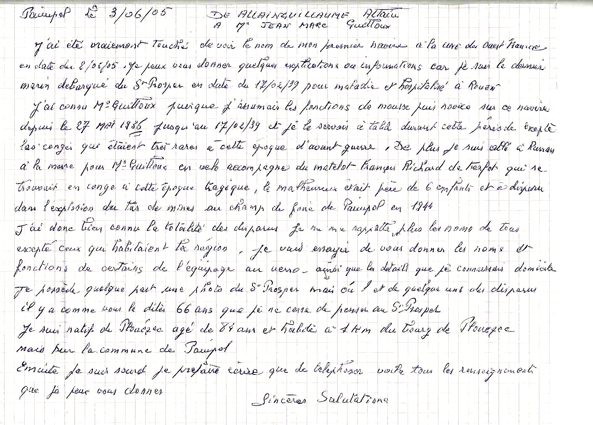 Paimpol le 3/06/05 DE ALLAINGUILLAUME Alain
A Mr JEAN MARC Guittoux
J'ai été vraiment touché de voir le nom de mon premier navire à la une du Ouest France
en date du 2/06/05. Je peux vous donner quelques explications ou informations car je suis le dernier
marin débarqué du St Prosper en date du 18/02/39 pour maladie et hospitalisé à Rouen
J'ai connu Mr Guittoux puisque j'assumais les fonctions de mousse puis novice sur ce navire
depuis le 27 MAI 1936 jusqu'au 17/02/39 et je le servais à table durant cette période excepté
les congés qui étaient très rares à cette époque d'avant guerre. De plus je suis allé à
à la messe pour Mr Guittoux en velo accompagné du matelot François Richard de qui se
trouvait en congé à cette époque tragique, le malheureux était père de 6 enfants et a disparu
dans l'explosion du tas de mines au champ de foire de Paimpol en 1944
J'ai donc bien connu la totalité des disparus Je ne me rappelle plus les noms de tous
excepté ceux qui habitaient la région. Je vais essayer de vous donner les noms et
fonctions de certains de l'équipage au verso ainsi que les détails que je connaissais domicile
Je possède quelque part une photo du St Prosper mais où ! et de quelques uns des disparus
il y a comme vous le dites 66 ans que je ne cesse de penser au St Prosper
Je suis natif de Plouézec agé de 84 ans et habite à 1 km du bourg de Plouézec
mais sur la commune de Paimpol
Ensuite je suis sourd je préfère écrire que de telephoner voila tous les renseignements
que je peux vous donner
Sincères Salutations